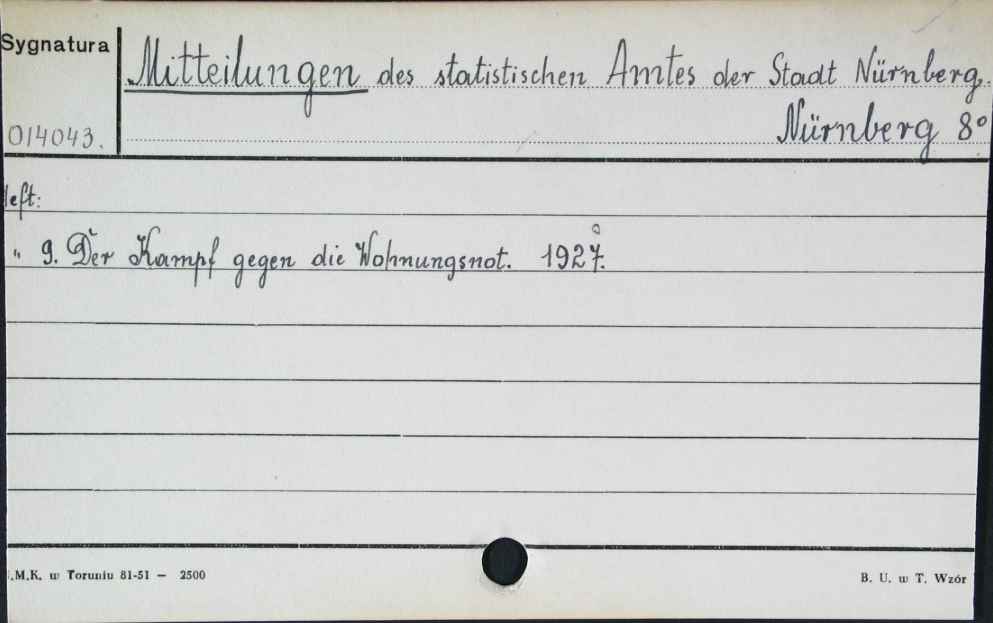 Sygnatura
Mitteilungen des statistischen Amtes der Stadt Nürnberg.
014043.
Nürnberg 8°
Heft:
" 9. Der Kampf gegen die Wohnungsnot. 1927.
.M.K. w Toruniu 81-51 — 2500
B. U. w T. Wzór